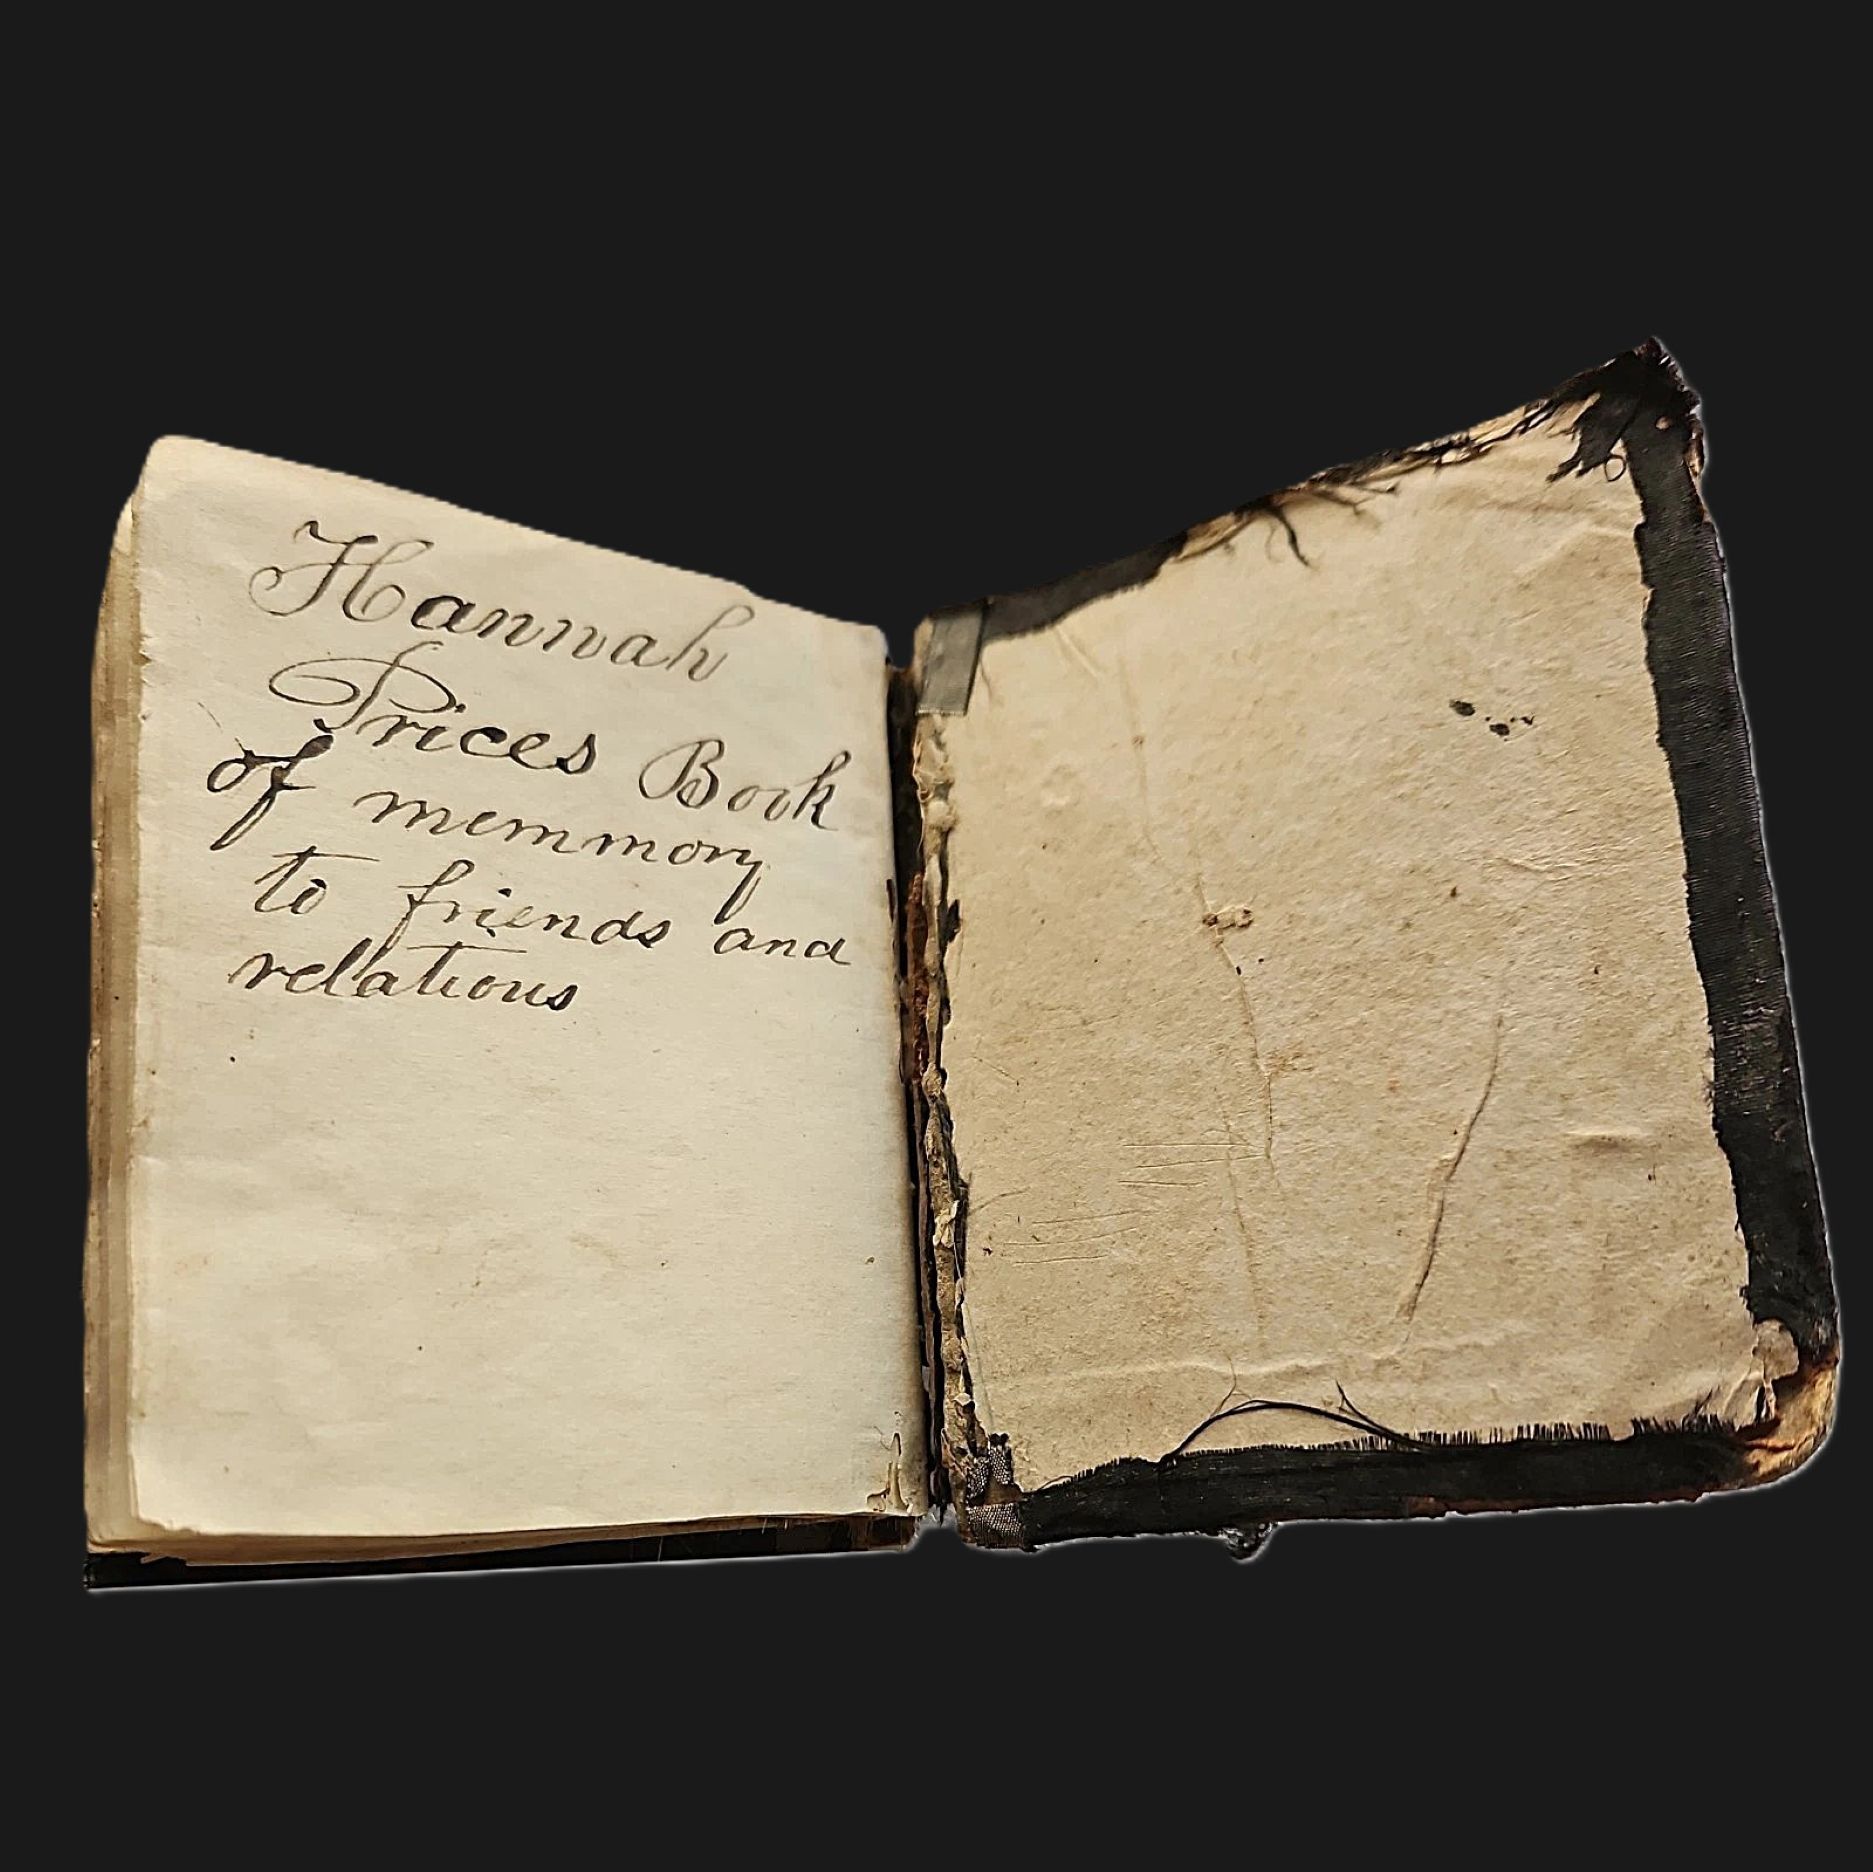 Hannah
Prices Book
of memmory
to friends and
relations